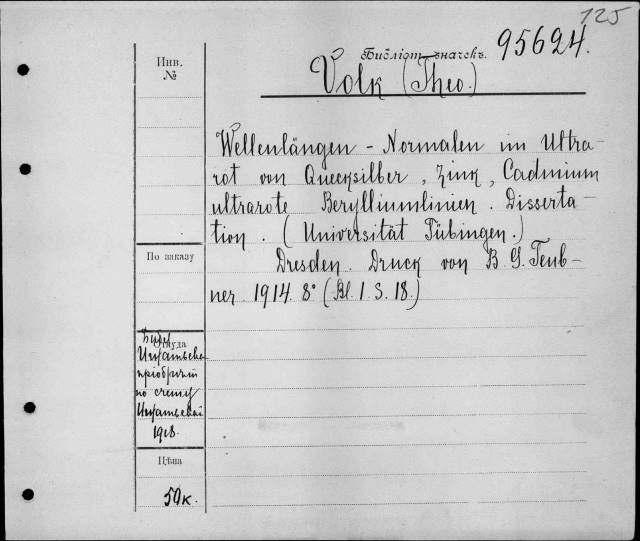 125
95624.
Библіот. значекъ.
Инв.
№
Volk (Theo.)
Wellenlängen - Normalen im Ultra-
rot von Quecksilber, Zink, Cadmium
ultrarote Berylliumlinien. Disserta-
tion. (Universität Tübingen.)
По заказу
Dresden. Druck von B. G. Teub-
ner. 1914. 8° (Bl. 1. S. 18.)
Откуда
по счету
1918.
Цѣна
50к.